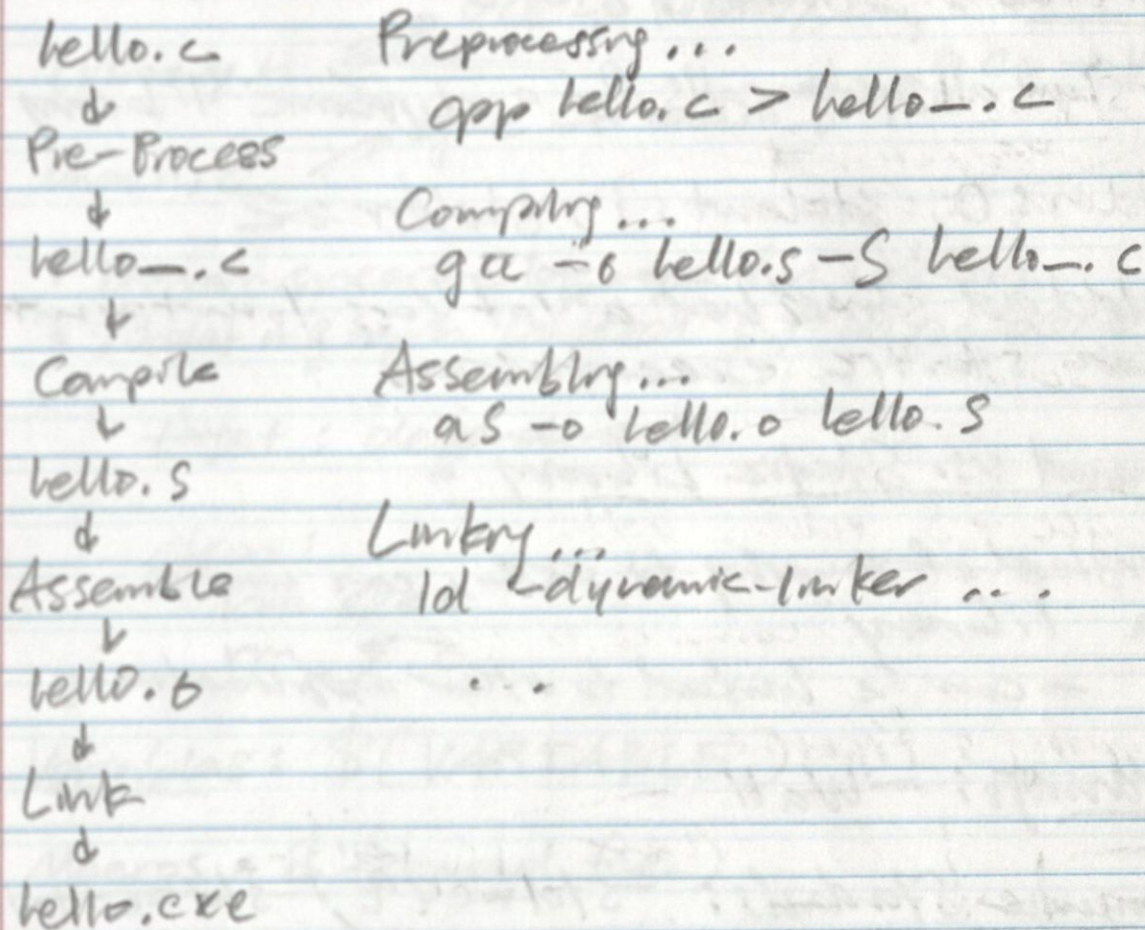 hello.c
↓
Pre-Process
↓
hello_.c
↓
Compile
↓
hello.s
↓
Assemble
↓
hello.o
↓
Link
↓
hello.exe
Preprocessing...
cpp hello.c > hello_.c
Compiling...
gcc -o hello.s -S hello_.c
Assembling...
as -o hello.o hello.s
Linking...
ld -dynamic-linker ...
..